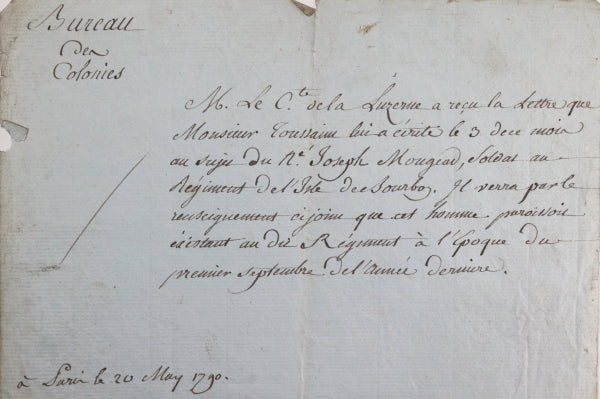 Bureau
des
Colonies
M. Le C.te de la Luzerne a reçu la Lettre que
Monsieur Toussaint lui a écrite le 3 de ce mois
au sujet du N.é Joseph Mougead, Soldat au
Régiment de l'Isle de Bourbon. Il verra par le
renseignement cijoint que cet homme paroissoit
éxistant au dit Régiment à l'Epoque du
premier septembre de l'année derniere.
à Paris le 20 May 1790.